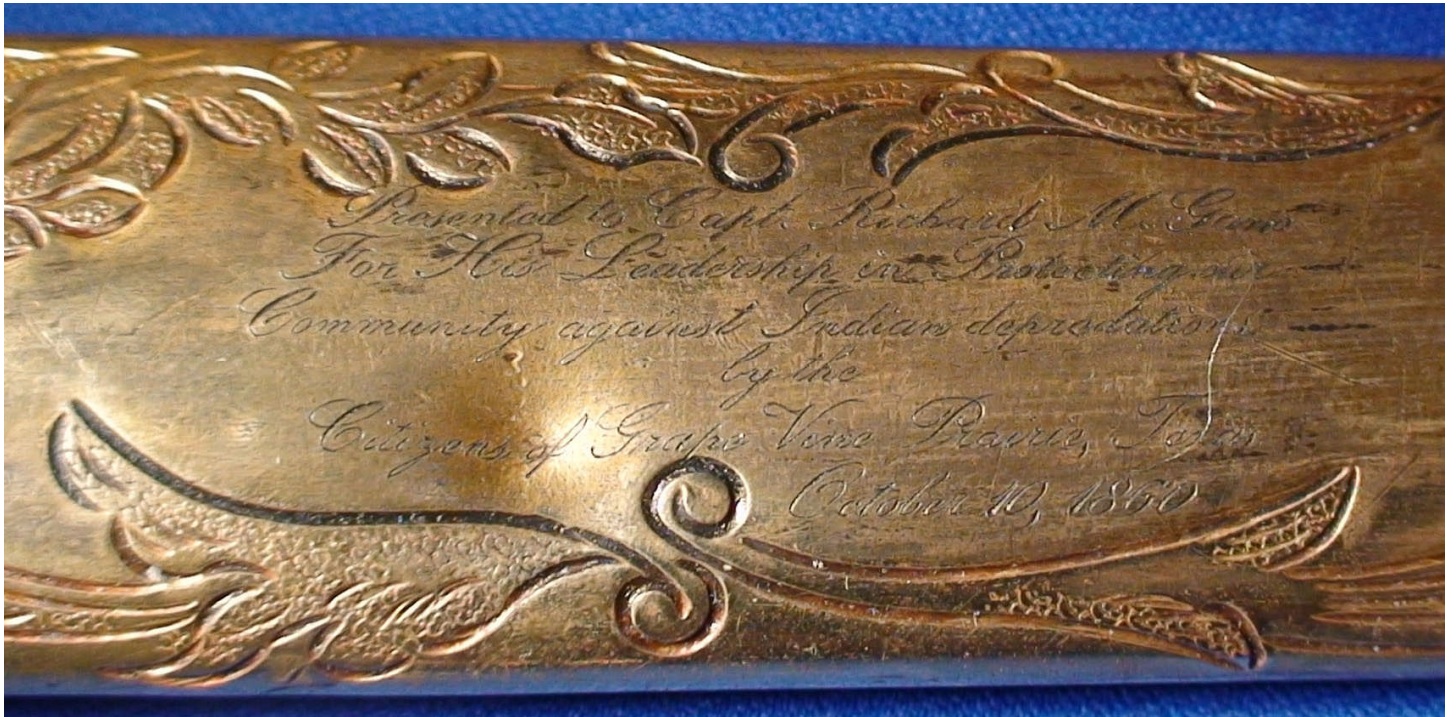 Presented to Capt. Richard M. Gano
For His Leadership in Protecting our
Community against Indian depradations
by the
Citizens of Grape Vine Prairie, Texas
October 10, 1860